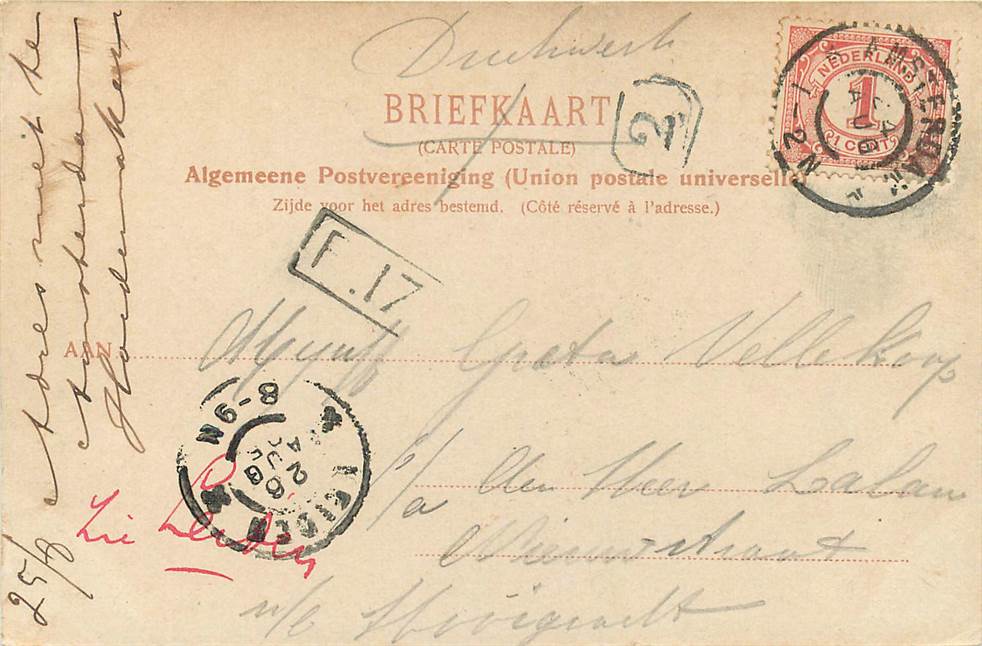 Drukwerk
BRIEFKAART
(CARTE POSTALE)
Algemeene Postvereeniging (Union postale universelle)
Zijde voor het adres bestemd. (Côté réservé à l'adresse.)
NEDERLAND
1
1 CENT
AMSTERDAM
1-2N
2
F.17
AAN Mejuff Greta Vellekoop
p/a den Heer
Nieuwstraat
n/b Hooigracht
LEIDEN
8-9N
Zie Leiden
Adres niet te
25/8